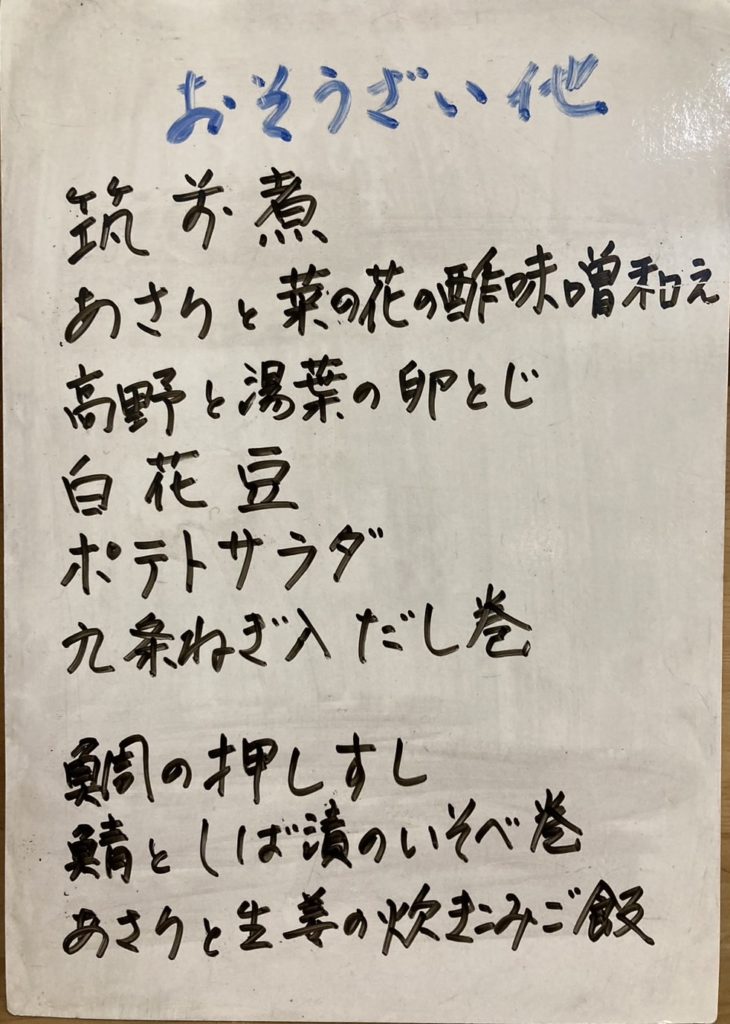 おそうざい他
筑前煮
あさりと菜の花の酢味噌和え
高野と湯葉の卵とじ
白花豆
ポテトサラダ
九条ねぎ入だし巻
鯛の押しすし
鯖としば漬のいそべ巻
あさりと生姜の炊きこみご飯